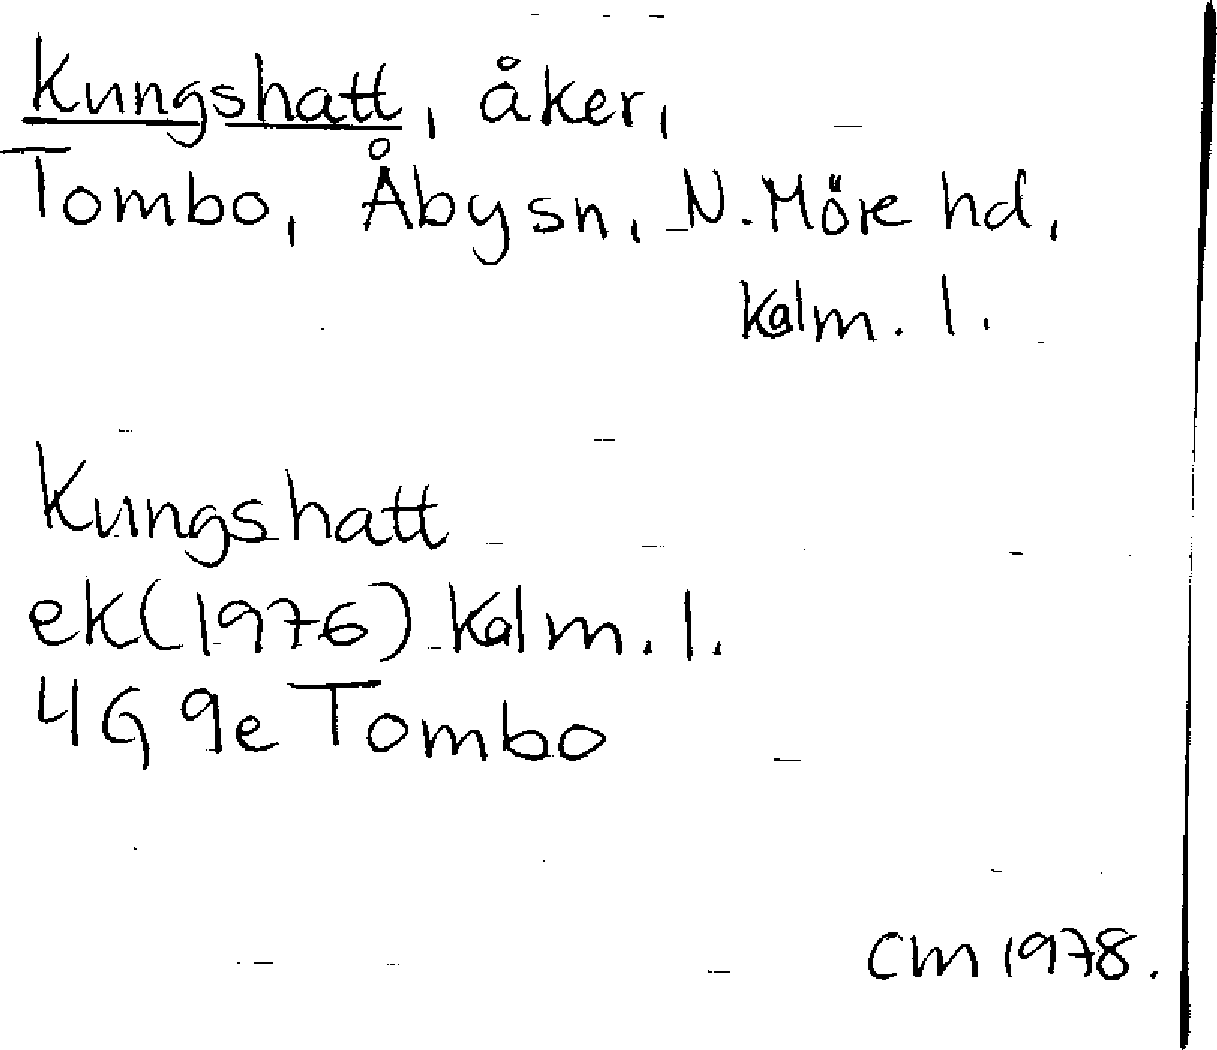 Kungshatt, åker,
Tombo, Åby sn, N. Möre hd,
Kalm. l.
Kungshatt
ek (1976) Kalm. l.
4G 9e Tombo
CM 1978.